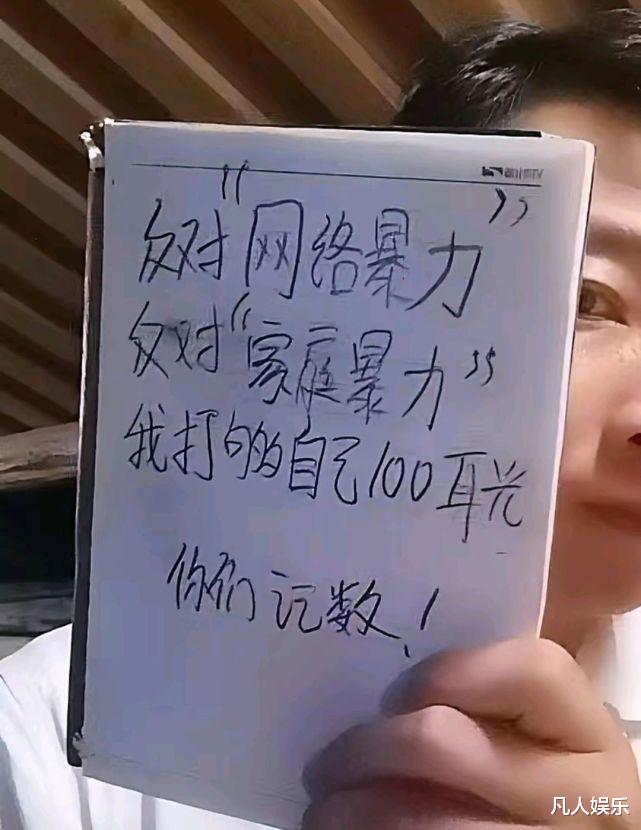 反对“网络暴力”
反对“家庭暴力”
我打够自己100耳光
你们记数!
凡人娱乐